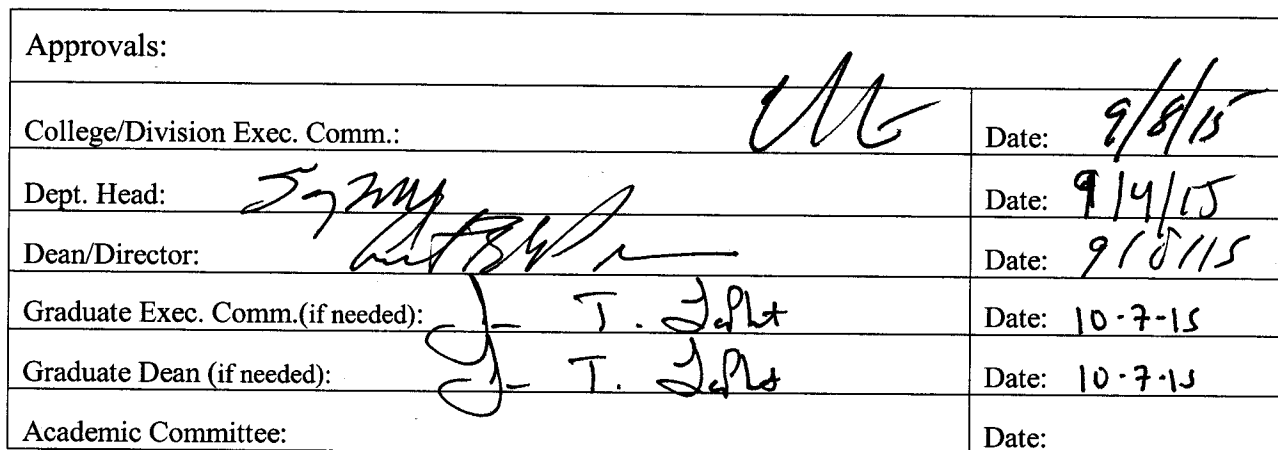 Approvals:
College/Division Exec. Comm.: Date: 9/8/15
Dept. Head: Date: 9/4/15
Dean/Director: Date: 9/8/15
Graduate Exec. Comm.(if needed): J- T. Date: 10-7-15
Graduate Dean (if needed): J- T. Date: 10-7-15
Academic Committee: Date: